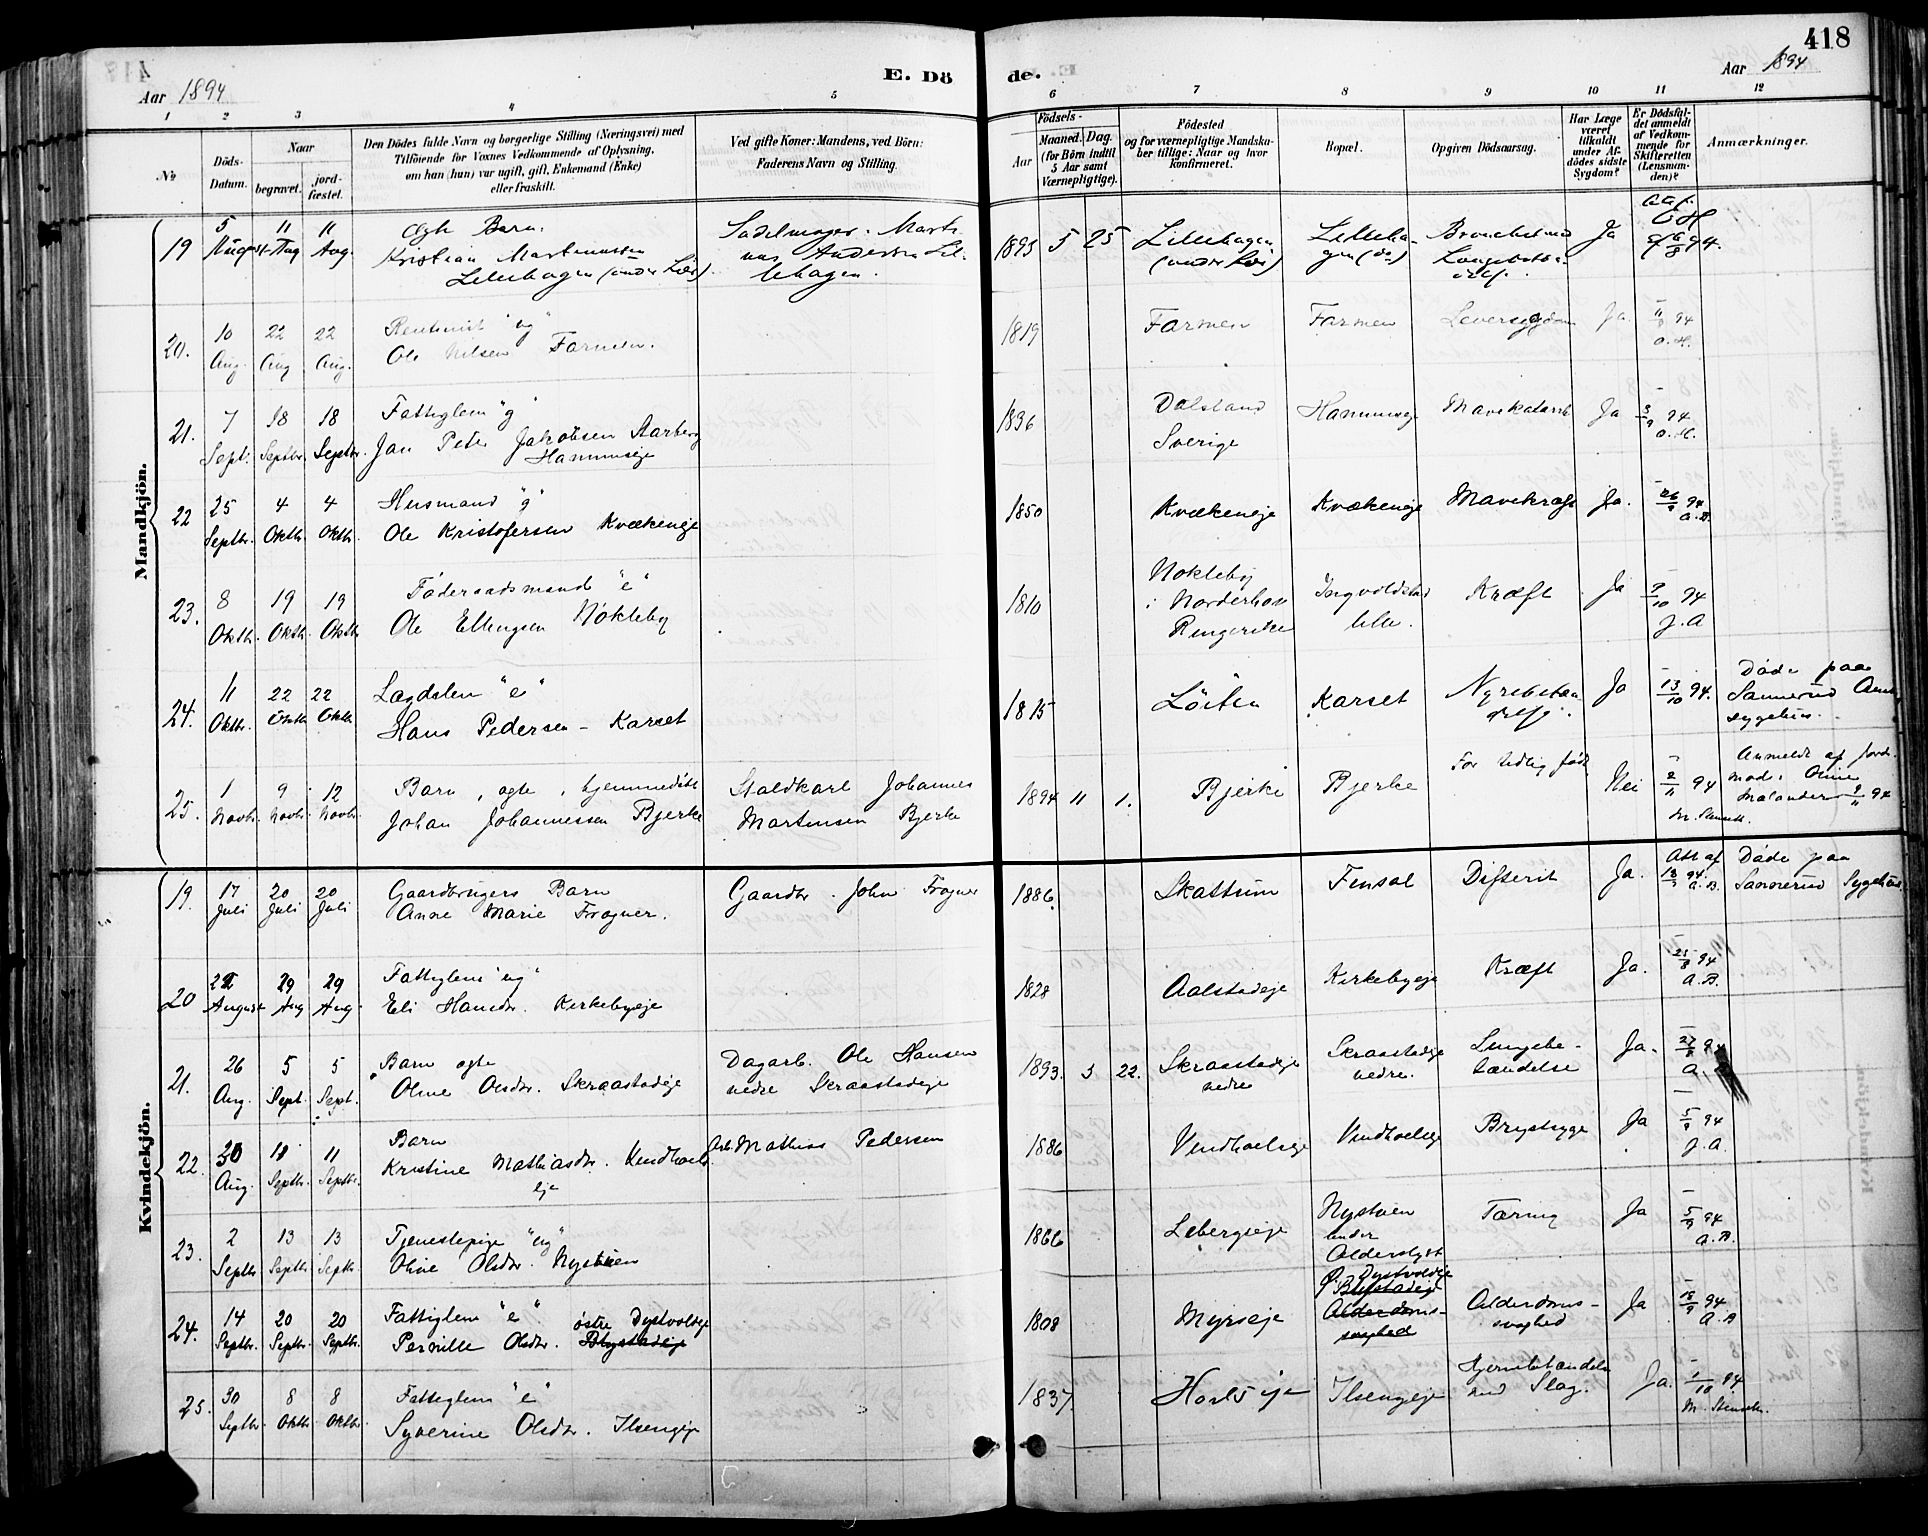 418
E. Dö de.
Aar 1894
Aar 1894
1 2 3 4 5 6 7 8 9 10 11 12
No
Döds-Datum.
Naar
begravet.
jord-fæstet.
Den Dödes fulde Navn og borgerlige Stilling (Næringsvei) med
Tilföiende for Voxnes Vedkommende af Oplysning,
om han (hun) var ugift, gift, Enkemand (Enke)
eller fraskilt.
Ved gifte Koner: Mandens, ved Börn:
Faderens Navn og Stilling.
Födsels-
Aar
Maaned. Dag.
(for Börn indtil
5 Aar samt
Værnepligtige).
Födested
og for værnepligtige Mandska-
ber tillige: Naar og hvor
konfirmeret.
Bopæl.
Opgiven Dödsaarsag.
Har Læge
været
tilkaldt
under Af-
dödes sidste
Sygdom?
Er Dödsfal-
det anmeldt
af Vedkom-
mende for
Skifteretten
(Lensman-
den)?
Anmærkninger.
Mandkjön.
19 5 August 11 Aug 11 Aug. Ægte Barn. Kristian Martinussen Lillehagen (under Lier). Sadelmager Marti-nus Andersen Lil-lehagen. 1893 5 25 Lillehagen (under Lier) Lilleha-gen (do) Ja 94.
20. 10 Aug. 22 Aug 22 Aug. "ug" Ole Nilsen Farmen. 1819 Farmen Farmen Leversygdom Ja 11/8 94 O.H.
21. 7 Sept. 18 Septbr. 18 Septbr. Fattiglem "g" Jan Peter Jakobsen Hammerseje 1836 Dalsland Sverige Mavekatarrh Ja 8/9 94 O.H.
22 25 Septbr. 4 Oktbr. 4 Oktbr. Husmand "g" Ole Kristofersen Kvækeneje 1850 Kvækeneje Kvækeneje Mavekræft Ja. 26/9 94 A.B.
23. 8 Oktbr. 19 Oktbr. 19 Oktbr. Föderaadsmand "e" Ole Ellingsen Nökleby 1810 Nökleby i Norderhov Ringerike Ingvoldstad lille. Kræft Ja 9/10 94 J.A
24. 11 Oktbr. 22 Oktbr 22 Oktbr. Lægdslem "e" Hans Pedersen - Karset 1815 Löiten Karset Ja 13/10 94. Döde paa Sannerud Amts sygehus.
25. 1 Novbr. 9 Novbr. 12 Novbr. Barn, ægte, hjemmedöbt Johan Johannessen Bjerke Staldkarl Johannes Martinsen Bjerke 1894 11 1. Bjerke Bjerke For tidlig födt Nei 2/11 94 Anmeldt af Jord-moder Oline 9/11 94
Kvindekjön.
19. 17 Juli 20 Juli 20 Juli Gaardbrugers Barn Anne Marie Frogner. Gaardbr. John Frogner 1886. Skattum Finsal Difterit Ja. Att af 94. A.B. Döde paa Sannerud Sygehus.
20 22 August 29 Aug 29 Aug. Fattiglem "ug" Eli Hansdr. Kirkebyeje 1828 Aalstadeje Kirkebyeje Kræft Ja. 25/8 94 A.B.
21. 26 Aug. 5 Sept. 5 Sept. Barn ægte Oline Olsdr. Skraastadeje Dagarb. Ole Hansen nedre Skraastadeje 1893. 3 22. Skraastadeje nedre Skraastadeje nedre. Lungebe-tændelse Ja. 27/8 94 A.
22. 30 Aug. 11 Septbr. 11 Septbr. Barn Kristine Mathiasdr. eje Mathias Pedersen 1886 Brystsyge Ja 5/9 94 J.A.
23. 2 Septbr 13 Septbr 13 Septbr. Tjenestepige "ug" Oline Olsdr. Nystuen 1866 Lebergseje Nystuen under Alderslyst Tæring Ja 5/9 94 A.B.
24. 14 Septbr. 20 Septbr. 20 Septbr. Fattiglem "e". Pernille Olsdr. östre Dystvoldeje 1808 Myrseje Ö. Dystvoldeje Alderdoms-svaghed Alderdoms-svaghed Ja 18/9 94 A.B
25. 30 Septbr. 8 Oktbr. 8 Oktbr. Fattiglem "e" Syverine Olsdr. Ilsengeje 1837. Ilsengeje Hjernebetændelse med Slag. Ja. 1/10 94